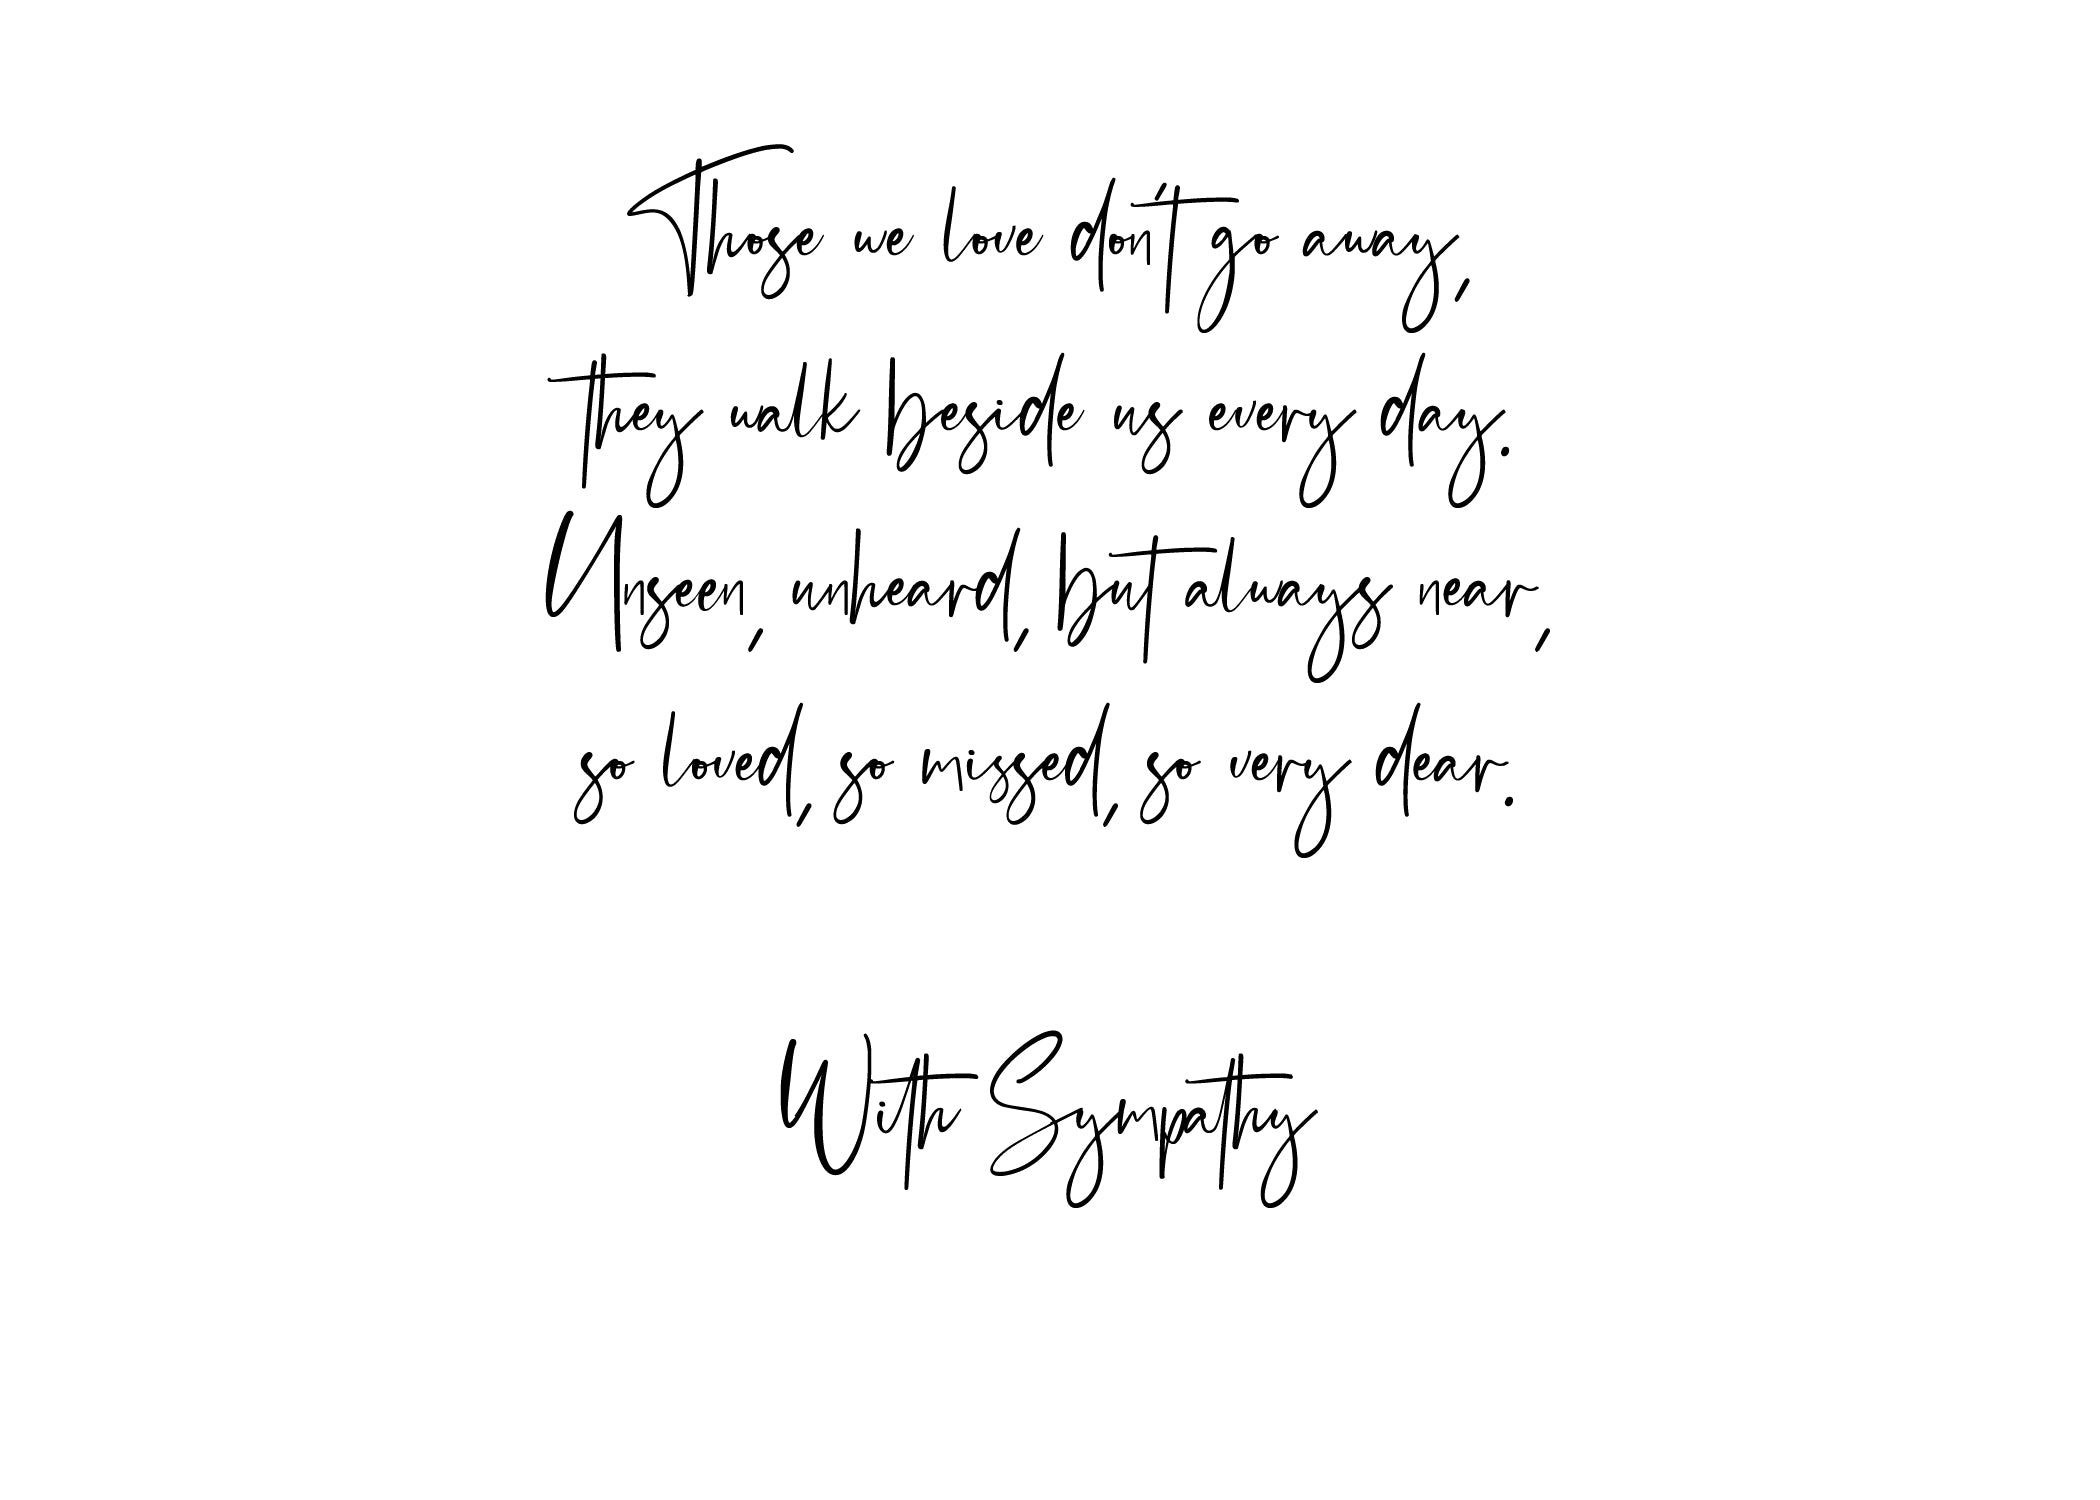 Those we love don't go away,
they walk beside us every day.
Unseen, unheard, but always near,
so loved, so missed, so very dear.
With Sympathy